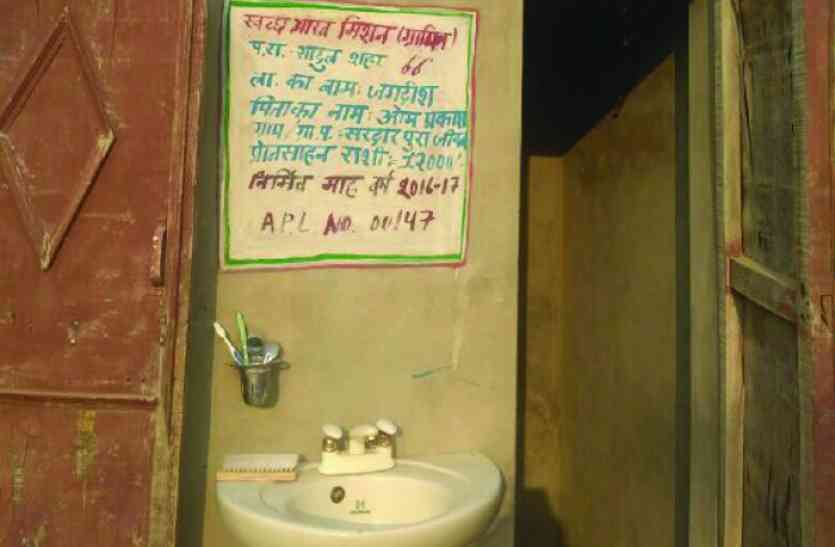 स्वच्छ भारत मिशन (ग्रामिण)
प.स.- सादुल शहर 66
ला. का नाम: जगदीश
पिता का नाम: ओम प्रकाश
ग्राम/ग्रा.प.: सरदारपुरा जीवन
प्रोत्साहन राशी:- 12000/-
निर्मित माह वर्ष 2016-17
A.P.L NO. 00147